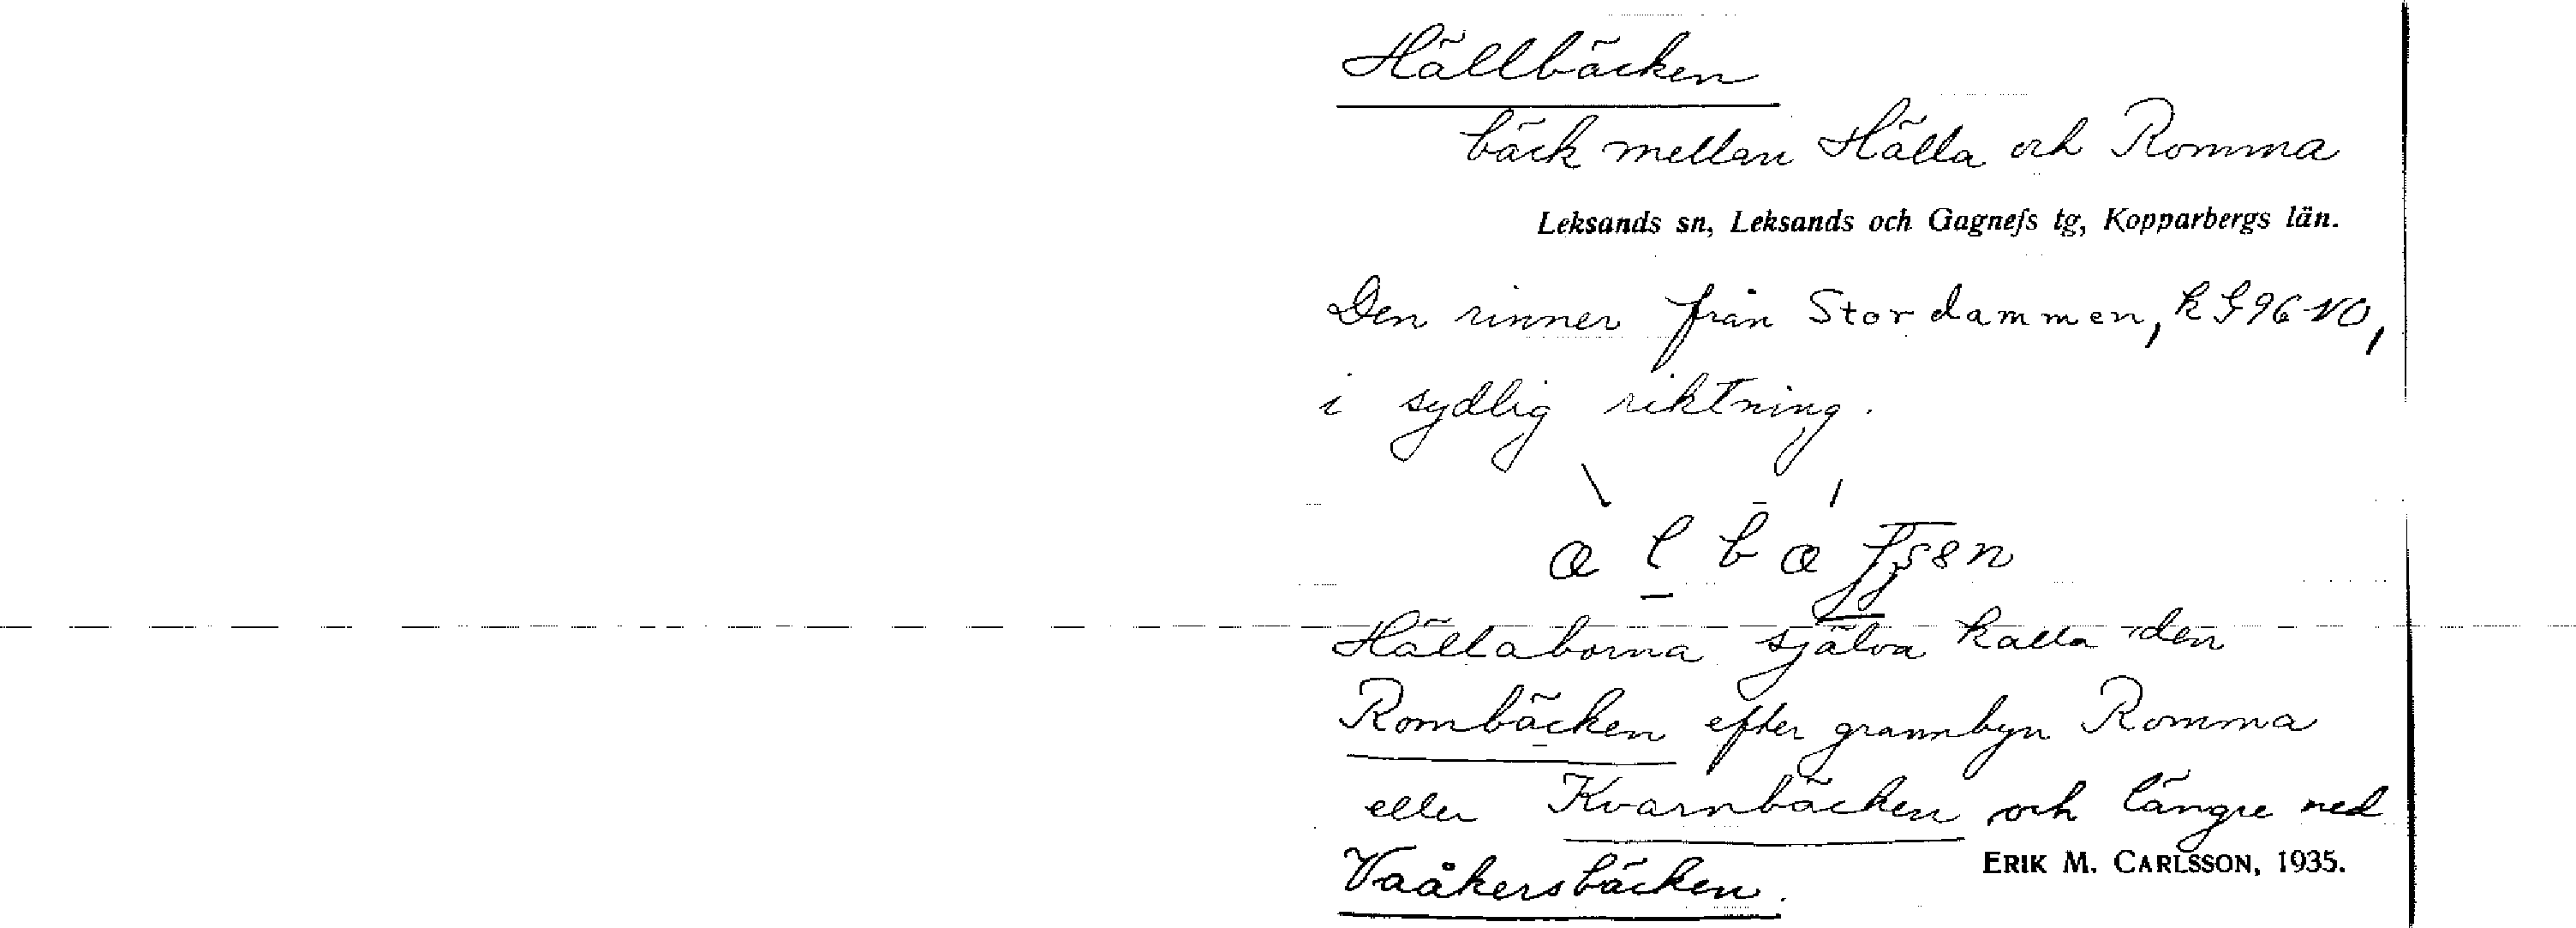 Hällbäcken
bäck mellan Hälla och Romma
Leksands sn, Leksands och Gagnefs tg, Kopparbergs län.
Den rinner från Stordammen, k G96 NO,
i sydlig riktning.
Hällaborna själva kalla den
Rombäcken efter grannbyn Romma
eller Kvarnbäcken och längre ned
ERIK M. CARLSSON, 1935.
Vaåkersbäcken.